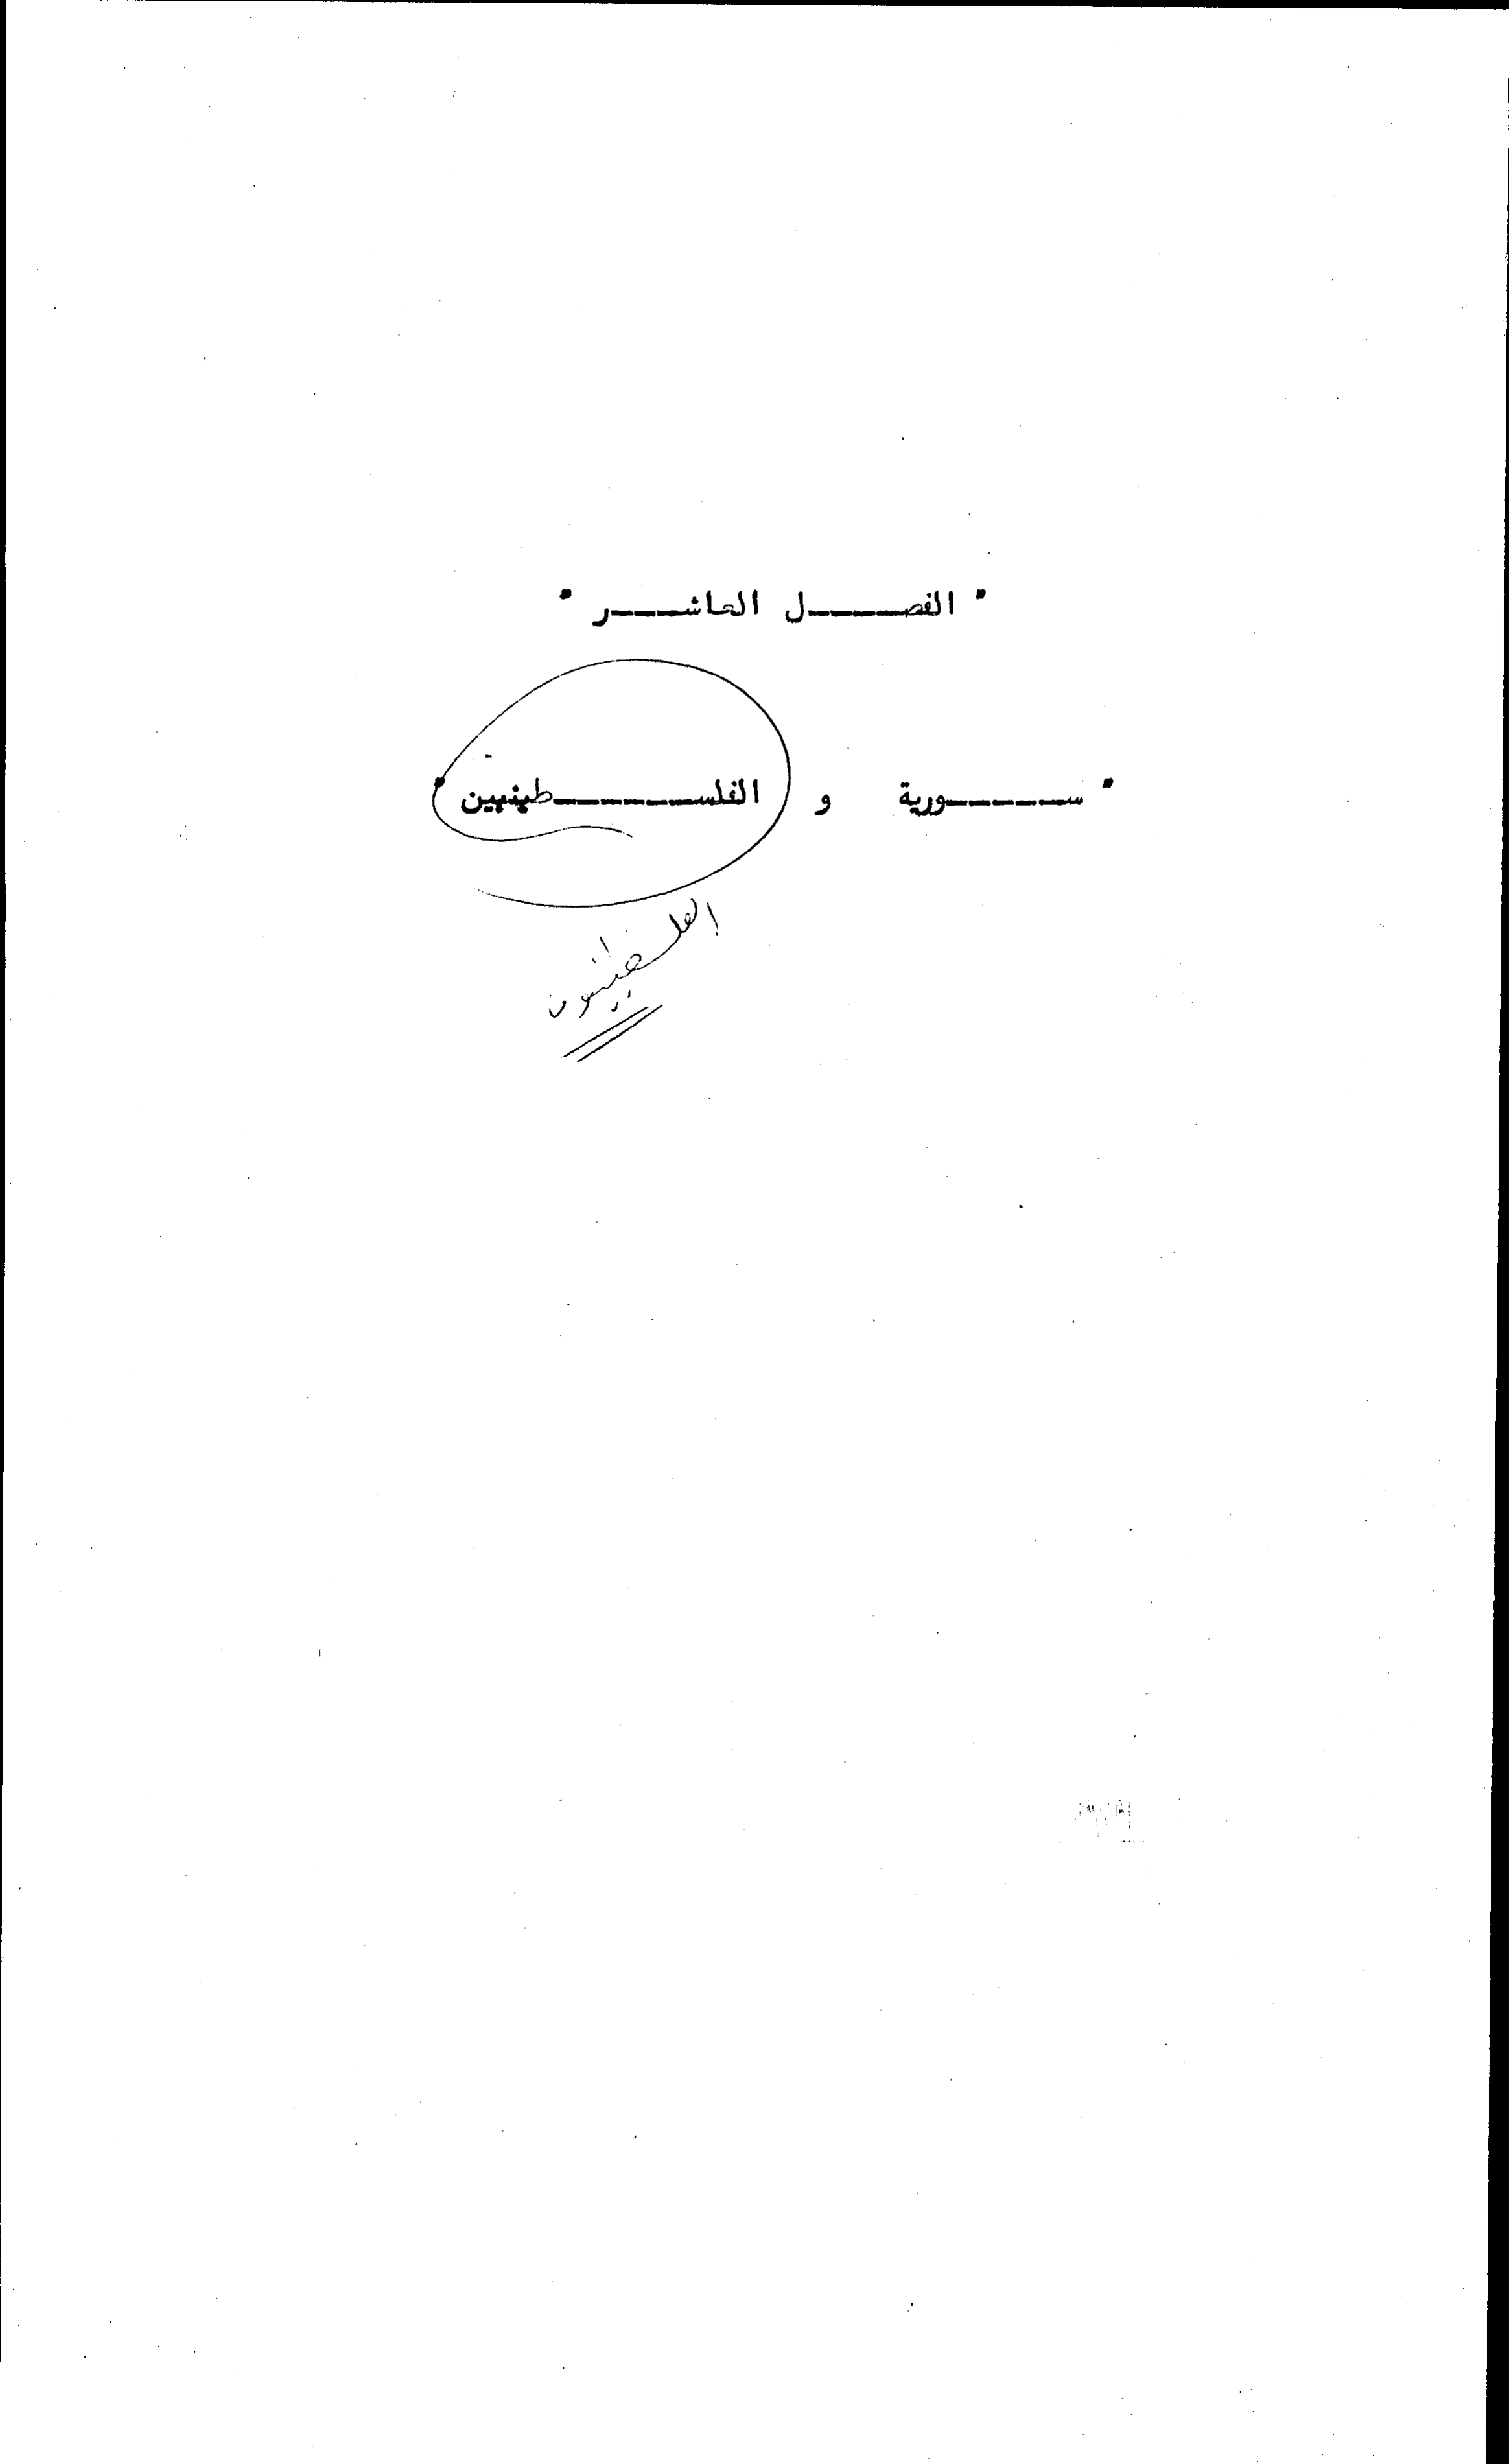 " الفصـــــل العاشـــــر "
" ســـــــورية و الفلســـــــــطينيين "
الفلسطينيون